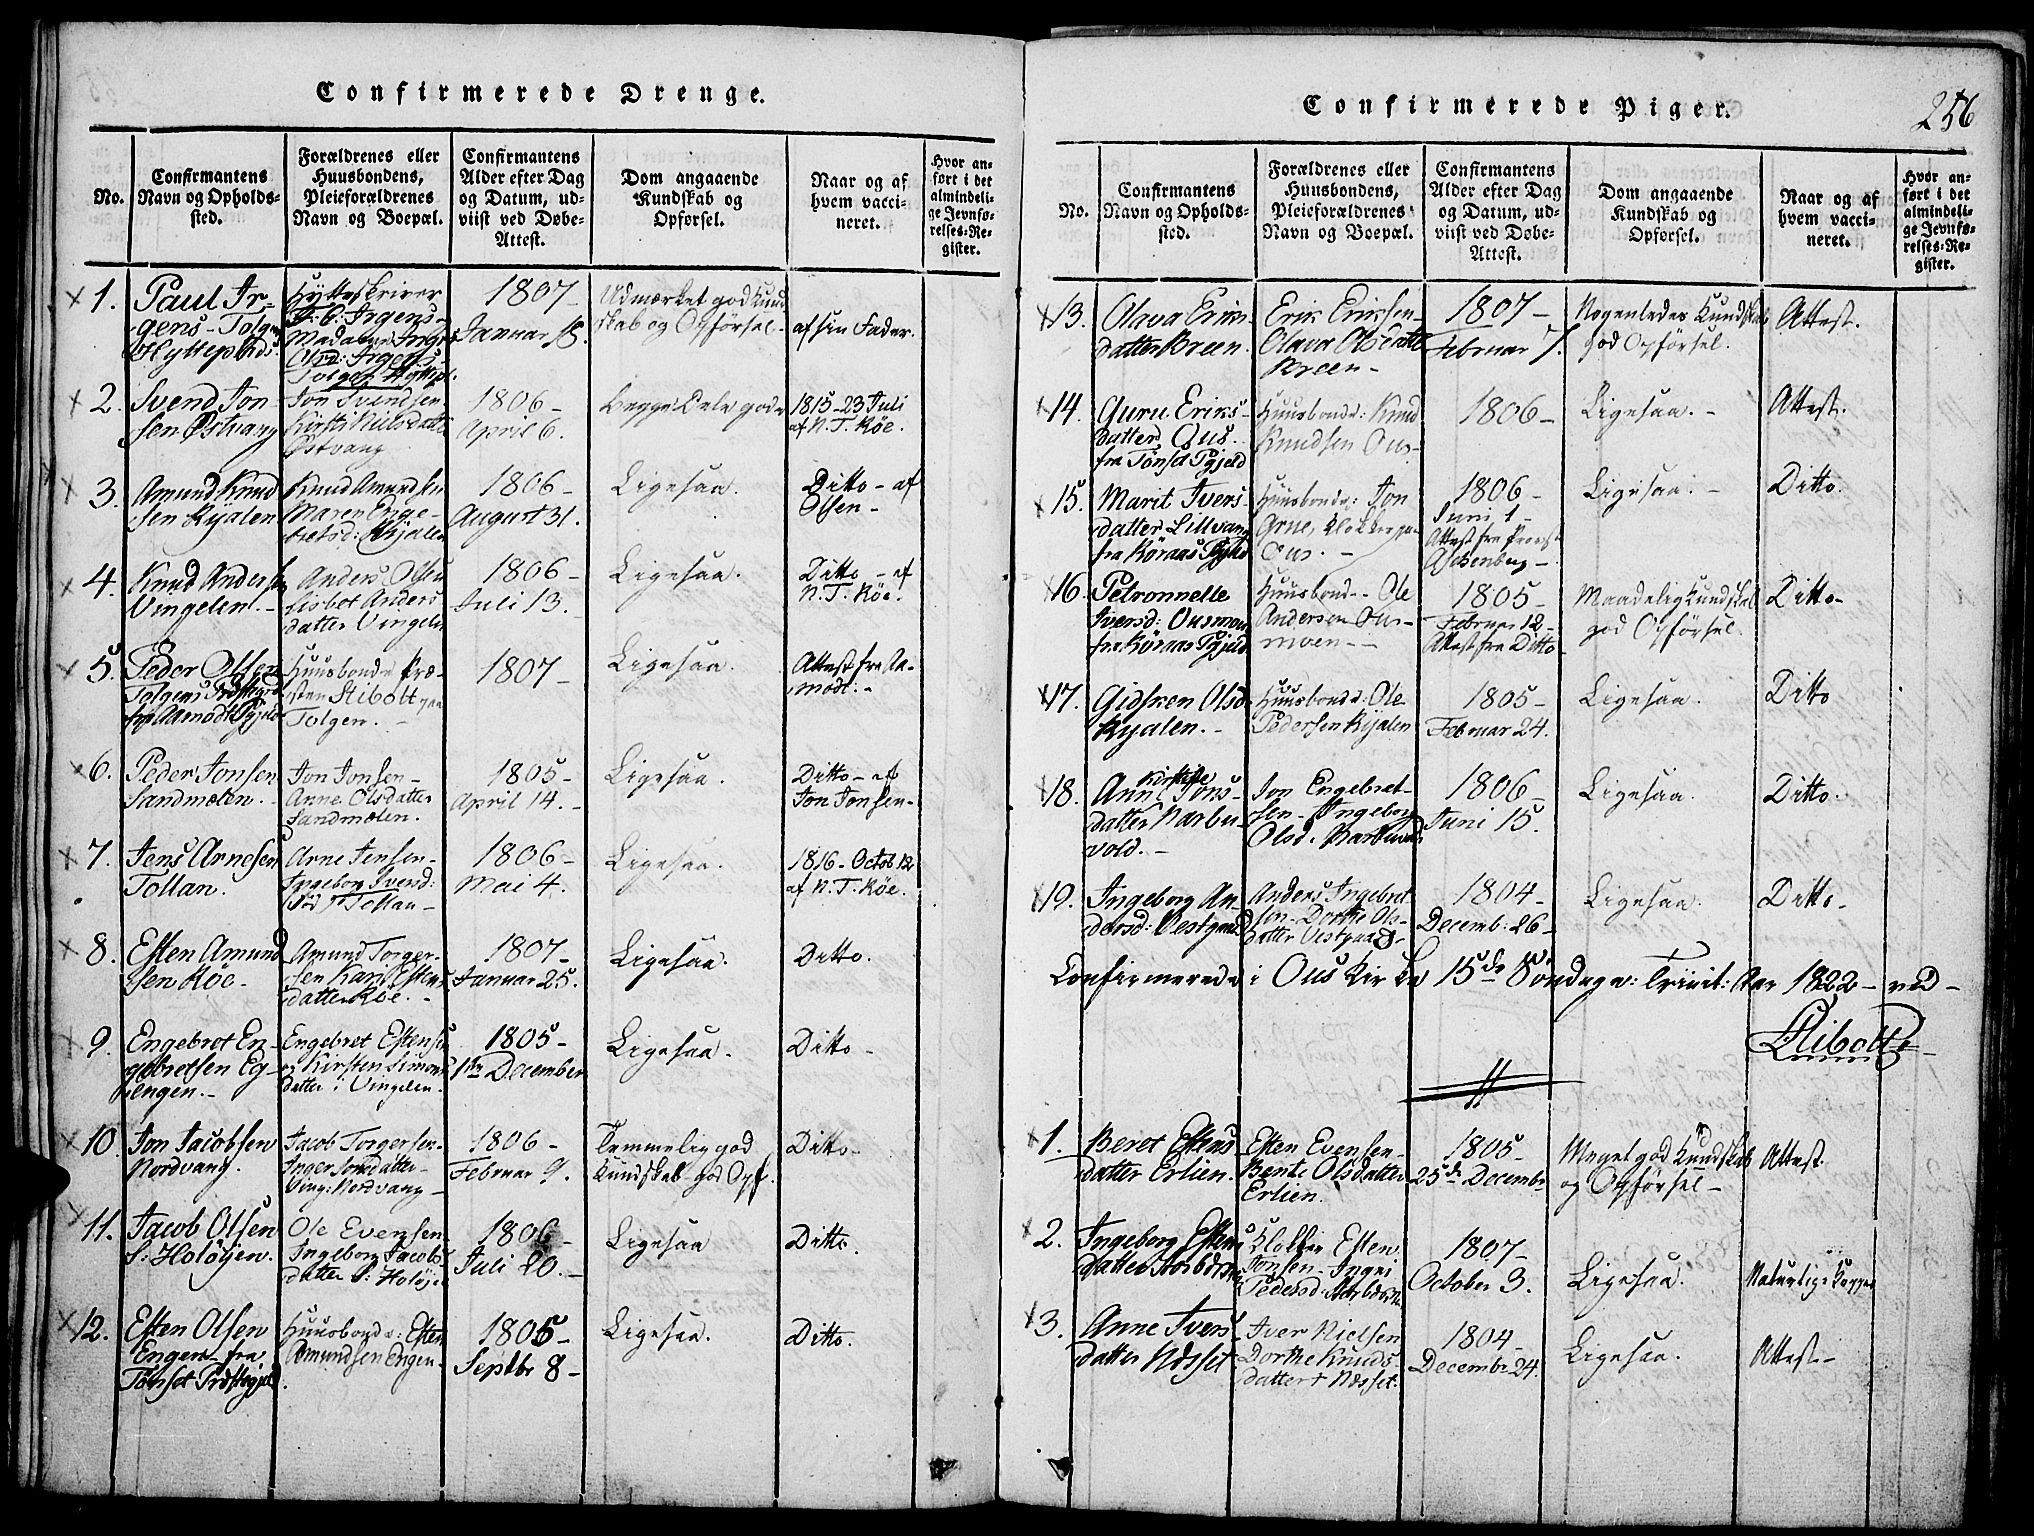 Confirmerede Drenge.
No.
Confirmantens
Navn og Opholds-
sted.
Forældrenes eller
Huusbondens,
Pleieforældrenes
Navn og Boepæl.
Confirmantens
Alder efter Dag
og Datum, ud-
viist ved Døbe-
Attest.
Dom angaaende
Kundskab og
Opførsel.
Naar og af
hvem vacci-
neret.
Hvor an-
ført i det
almindeli-
ge Jevnfø-
relses-Re-
gister.
1.
Paul Ir-
gens - Tolgens
Hytteplads
Hytteskriver
Irgens -
Madame Inger
Olsd: Irgens -
Tolgens Hyttepl.
1807 -
Januar 18.
Udmærket god Kund
skab og Opførsel -
af sin Fader.
2.
Svend Jon-
sen Østvang
Jon Svendsen
Kirsti Nilsdatter
Østvang
1806 -
April 6.
begge Dele gode
1815 - 23 Juli
af N. T. Röe.
3.
Amund Knud
sen Kyalen
Knud Amundsen
Maren Enge-
bretsd: Kyalen
1806 -
August 31.
Ligesaa.
Ditto - af
Olsen -
4.
Knud Andersen
Vingelen. -
Anders Olsen
Lisbet Anders
datter Vingelen
1806 -
Juli 13.
Ligesaa.
Ditto - af
N. T. Röe.
5.
Peder Olsen
Tolgens Præstegd
fra Aamodt Pgjeld
Huusbonde Præ-
sten Stibolt paa
Tolgen. -
1807 -
Ligesaa.
Attest fra Aa-
modt. -
6.
Peder Jonsen
Sandmælen. -
Jon Jonsen -
Anne Olsdatter
Sandmælen.
1805 -
April 14. -
Ligesaa.
Ditto - af
Jon Jonsen -
7.
Jens Arnesen
Tollan.
Arne Jensen -
Ingeborg Svend:
Tollan -
1806 -
Mai 4.
Ligesaa.
1816 - Octob 12
af N. T. Röe.
8.
Esten Amund
sen Röe -
Amund Torger-
sen Kari Estens
datter Röe. -
1807 -
Januar 25.
Ligesaa.
Ditto.
9.
Engebret En-
gebretsen Eg-
gengen. -
Engebret Estensen
og Kirsten Simons
datter i Vingelen -
1805 -
1ste December
Ligesaa -
Ditto -
10.
Jon Jacobsen
Nordvang.
Jacob Torgersen -
Inger Jonsdatter -
Ving: Nordvang -
1806 -
Februar 9.
Temmelig god
Kundskab god Opf.
Ditto -
11.
Jacob Olsen
S: Holøyen.
Ole Evensen
Ingeborg Jacobs
datter S: Holøye
1806 -
Juli 20. -
Ligesaa
Ditto.
12.
Esten Olsen
Engen - fra
Tönset Præstegjeld
Huusbonde: Esten
Amundsen Engen -
1805 -
Septbr 8 -
Ligesaa.
Ditto.
Confirmerede Piger.
256
No.
Confirmantens
Navn og Opholds-
sted.
Forældrenes eller
Huusbondens,
Pleieforældrenes
Navn og Boepæl.
Confirmantens
Alder efter Dag
og Datum, ud-
viist ved Døbe-
Attest.
Dom angaaende
Kundskab og
Opførsel.
Naar og af
hvem vacci-
neret.
Hvor an-
ført i det
almindeli-
ge Jevnfø-
relses-Re-
gister.
13.
Olava Eriks
datter Breen.
Erik Eriksen -
Olava Olsdatter
Breen -
1807 -
Februar 7.
Nogenledes Kundskab
god Opførsel.
Attest.
14.
Guru Eriks-
datter Ous.
fra Tönset Pgjeld
Huusbonde: Knud
Knudsen Ous -
1806 -
Ligesaa. -
Attest.
15.
Marit Ivers-
datter Lillvang
fra Röraas Pgjeld
Huusbonde: Jon
Arne, Klokker paa
Ous. -
1806 -
Juni 1 -
Attest fra Provst
Aschenberg -
Ligesaa. -
Ditto.
16.
Petronnelle
Iversd: Ousmoen
fra Röraas Pgjeld
Huusbond - Ole
Andersen Ous-
moen -
1805 -
Februar 12 -
Attest fra Ditto
Maadelig Kundskab
god Opførsel.
Ditto -
17.
Gidsken Olsd
Kyalen. -
Huusbonde: Ole
Pedersen Kyalen
1805 -
Februar 24.
Ligesaa.
Ditto
18.
Kirstie
Anne Jons-
datter Narbu-
vold. -
Jon Engebret-
sen - Ingeborg
Olsd: Narbuvold
1806 -
Juni 15.
Ligesaa.
Ditto.
19.
Ingeborg An-
dersd: Vestgaard
Anders Ingebret
sen - Dorthe Ols-
datter Vestgaard -
1804 -
Decemb: 26 -
Ligesaa.
Ditto -
Confirmerede i Ous Kirke 15de Søndag e: Trinit: Aar 1822 - ved -
Stibolt
1.
Beret Estens
datter Erlien.
Esten Evensen -
Berte Olsdatter
Erlien.
1805 -
25de Decembr
Meget god Kundskab
og Opførsel -
Attest.
2.
Ingeborg Estens
datter
Klokker Esten
Jonsen - Ingri
Pedersd:
1807 -
October 3.
Ligesaa.
Naturlige Kopper
3.
Anne Ivers
datter Næsset
Iver Nielsen
Dorthe Knuds
datter Næsset.
1804 -
December 24.
Ligesaa.
Attest -